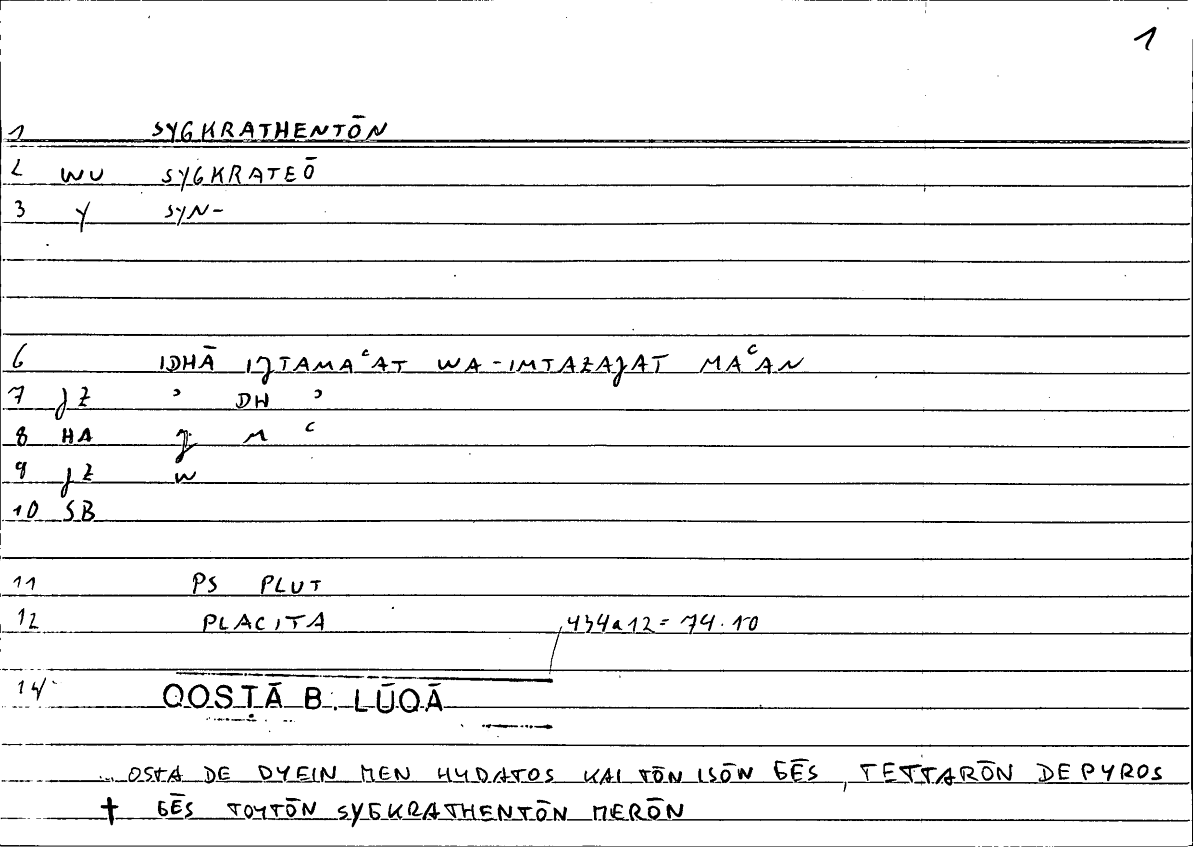 1
1 SYGKRATHENTŌN
2 WU SYGKRATEŌ
3 Y SYN-
6 IDHĀ IJTAMAʿAT WA-IMTAZAJAT MAʿAN
7 JZ ʾ DH ʾ
8 HA J M ʿ
9 JZ W
10 SB
11 PS PLUT
12 PLACITA 434a12 = 74.10
14 QOSṬĀ B. LŪQĀ
... OSTA DE DYEIN MEN HYDATOS KAI TŌN ISŌN GĒS, TETTARŌN DE PYROS
† GĒS TOYTŌN SYGKRATHENTŌN MERŌN